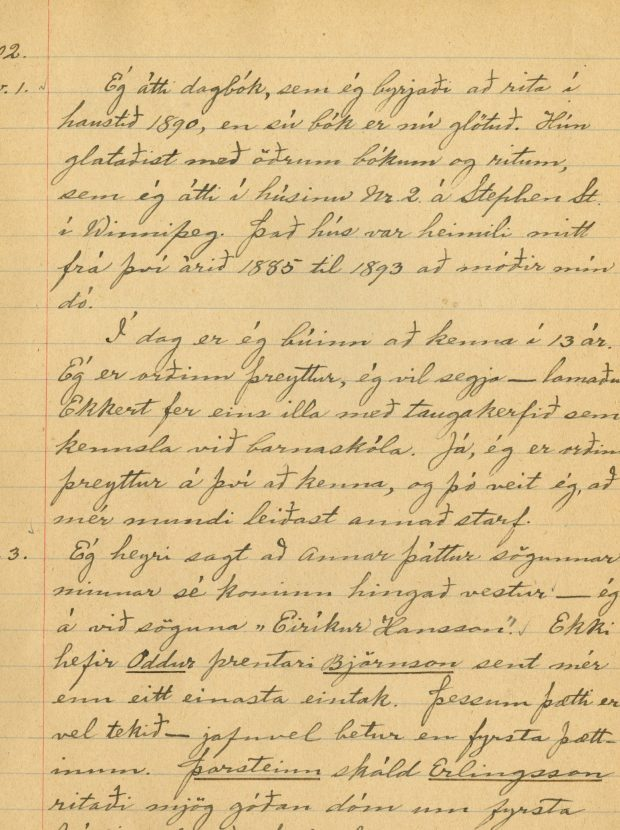 02.
r. 1. Ég átti dagbók, sem ég byrjaði að rita í
haustið 1890, en sú bók er nú glötuð. Hún
glataðist með öðrum bókum og ritum,
sem ég átti í húsinu Nr. 2 á Stephen St.
í Winnipeg. Það hús var heimili mitt
frá því árið 1885 til 1893 að móðir mín
dó.
Í dag er ég búinn að kenna í 13 ár.
Ég er orðinn þreyttur, ég vil segja — lamaðu
Ekkert fer eins illa með taugakerfið sem
kennsla við barnaskóla. Já, ég er orðin
þreyttur á því að kenna, og þó veit ég, að
mér mundi leiðast annað starf.
3. Ég heyri sagt að annar þáttur sögunnar
minnar sé kominn hingað vestur — ég
á við söguna „Eiríkur Hansson". Ekki
hefir Oddur prentari Björnson sent mér
enn eitt einasta eintak. Þessum þætti er
vel tekið — jafnvel betur en fyrsta þætt-
inum. Þorsteinn skáld Erlingsson
ritaði mjög góðan dóm um fyrsta